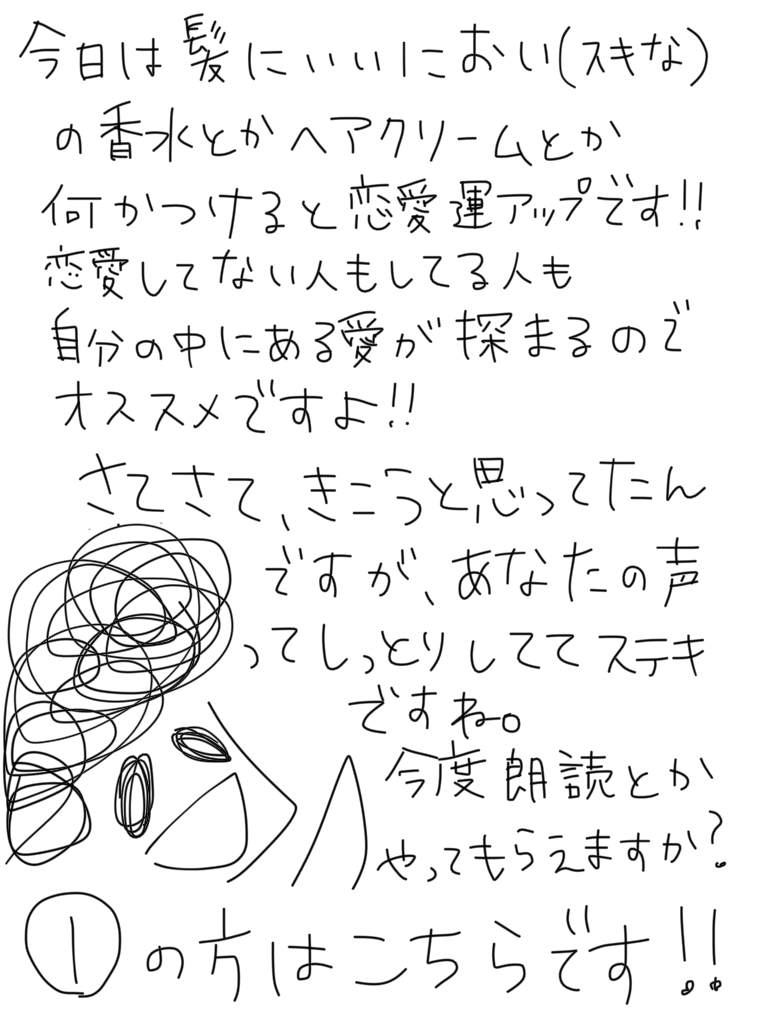 今日は髪にいいにおい(スキな)
の香水とかヘアクリームとか
何かつけると恋愛運アップです!!
恋愛してない人もしてる人も
自分の中にある愛が探まるので
オススメですよ!!
さてさて、きこうと思ってたん
ですが、あなたの声
ってしっとりしててステキ
ですね。
今度朗読とか
やってもらえますか?
①の方はこちらです!!